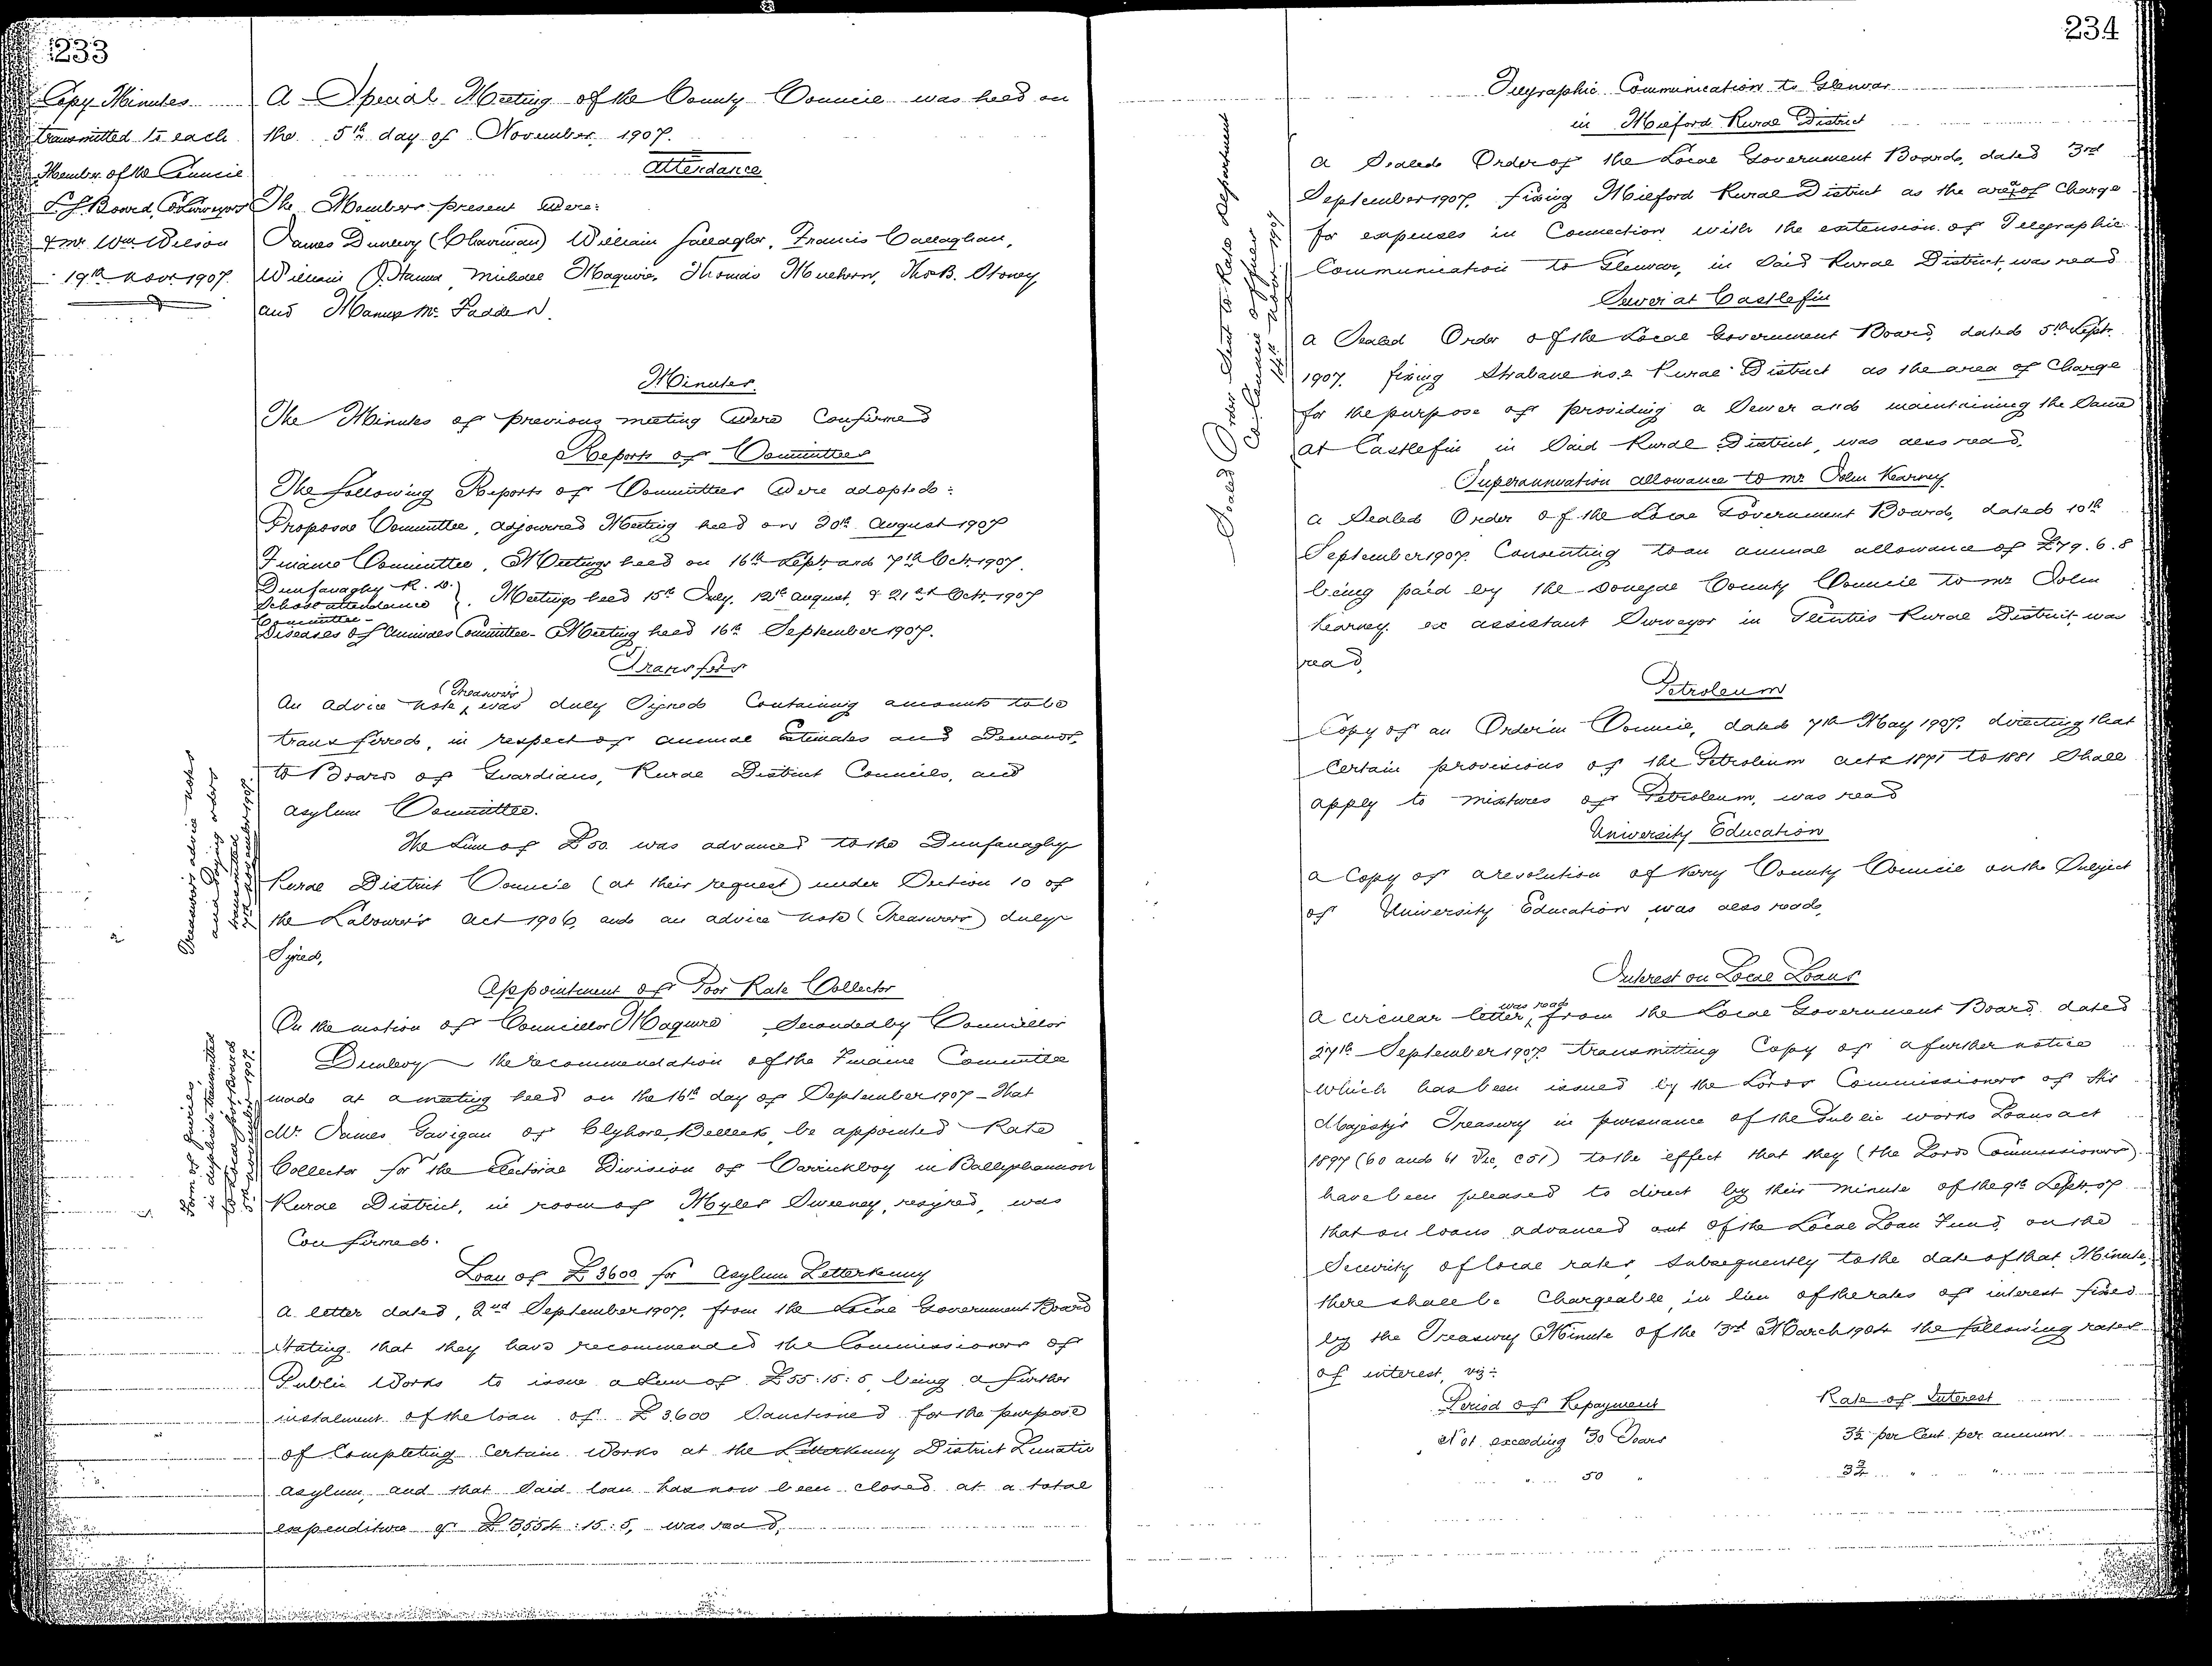 233
Copy Minutes
transmitted to each
Member of the Council
L. G. Board, Co Surveyors
& Mr. Wm. Wilson
19th Novr 1907.
A Special Meeting of the County Council was held on
the 5th day of November, 1907.
Attendance
The Members present Were:
James Dunlevy (Chairman) William Gallagher, Francis Callaghan,
William J. Hanna, Michael Maguire, Thomas Mulhern, Thos B. Stoney
and Manus Mc. Fadden.
Minutes.
The Minutes of previous meeting Were Confirmed
Reports of Committees
The following Reports of Committees Were adopted:
Proposal Committee, Adjourned Meeting held on 20th August 1907
Finance Committee, Meetings held on 16th Sept. and 7th Oct. 1907.
Dunfanaghy R. D.
School attendance
Committee -
Meetings held 15th July. 12th August, & 21st Oct. 1907
Diseases of Animals Committee - Meeting held 16th September 1907.
Transfers
An advice note, (Treasurer's) was duly Signed Containing amounts to be
transferred, in respect of annual Estimates and Demands,
to Boards of Guardians, Rural District Councils, and
Asylum Committee.
The Sum of £50. was advanced to the Dunfanaghy
Rural District Council (at their request) under Section 10 of
the Labourer's Act 1906, and an advice note (Treasurers) duly
Signed,
Treasurers advice notes
and Paying orders
transmitted
7th November 1907.
Appointment of Poor Rate Collector
On the motion of Councillor Maguire Seconded by Councillor
Dunlevy the recommendation of the Finance Committee
made at a meeting held on the 16th day of September 1907 - That
Mr. James Gavigan of Clyhore, Belleek, be appointed Rate
Collector for the Electoral Division of Carrickboy in Ballyshannon
Rural District, in room of Myles Sweeney, resigned, was
Confirmed.
Form of Queries,
in duplicate transmitted
to Local Gov. Board
5th November 1907.
Loan of £3600 for Asylum Letterkenny
A letter dated, 2nd September 1907, from the Local Government Board
Stating that they have recommended the Commissioners of
Public Works to issue a Sum of £55:15:5 being a further
instalment of the loan of £3600 Sanctioned for the purpose
of Completing Certain Works at the Letterkenny District Lunatic
Asylum, and that Said loan has now been closed at a total
expenditure of £3554:15:5, was read,
234
Telegraphic Communication to Glenvar
in Milford Rural District
A Sealed Order of the Local Government Board, dated 3rd
September 1907, fixing Milford Rural District as the area of Charge
for expenses in Connection with the extension of Telegraphic
Communication to Glenvar, in Said Rural District, was read
Sewer at Castlefin
A Sealed Order of the Local Government Board, dated 5th Sept.
1907. fixing Strabane No. 2 Rural District as the area of Charge
for the purpose of providing a Sewer and maintaining the Same
at Castlefin in Said Rural District, was also read,
Sealed Order Sent to Rate Department
Co Council offices
14th Novr. 1907
Superannuation allowance to Mr John Kearney
A Sealed Order of the Local Government Board, dated 10th
September 1907. Consenting to an annual allowance of £79.6.8
being paid by the Donegal County Council to Mr John
Kearney. ex assistant Surveyor in Glenties Rural District was
read,
Petroleum
Copy of an Order in Council, dated 7th May 1907. directing that
Certain provisions of the Petroleum Acts 1871 to 1881 Shall
apply to mixtures of Petroleum, was read
University Education
A Copy of a resolution of Kerry County Council on the Subject
of University Education was also read,
Interest on Local Loans
A circular letter, was read from the Local Government Board dated
27th September 1907 transmitting Copy of a further notice
which has been issued by the Lords Commissioners of His
Majesty's Treasury in pursuance of the Public works Loans act
1897 (60 and 61 Vic, c 51) to the effect that they (the Lords Commissioners)
have been pleased to direct by their Minute of the 9th Sept. 07
that on loans advanced out of the Local Loan Fund, on the
Security of local rates, subsequently to the date of that Minute,
there shall be Chargeable, in lieu of the rates of interest fixed
by the Treasury Minute of the 3rd March 1904 the following rates
of interest, viz:
Period of Repayment Rate of Interest
Not exceeding 30 Years 3½ per Cent per annum
" 50 " 3¾ " "